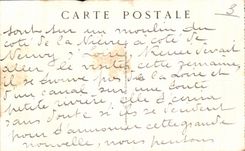 CARTE POSTALE
sont sur un moulin du
côté de la Nièvre à côté de
Nevroy devait
aller les visiter cette semaine
il se trouve près de la Loire et
d'un canal sur une toute
petite rivière, elle
sans doute si ils se
pour d'annoncer cette grande
nouvelle, nous pensons